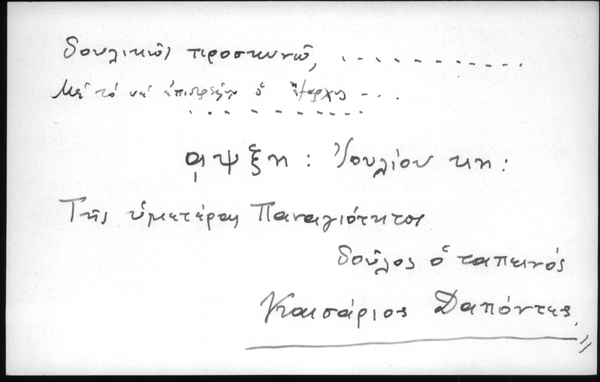 δουλικῶς προσκυνῶ, . . . . . . . . . . .
Μὲ τὸ νὰ ἐπιστρέψῃ ὁ - . .
. . . . . . . . .
͵αψξη : Ἰουλίου κη :
Τῆς ὑμετέρας Παναγιότητος
δοῦλος ὁ ταπεινός
Καισάριος Δαπόντες.